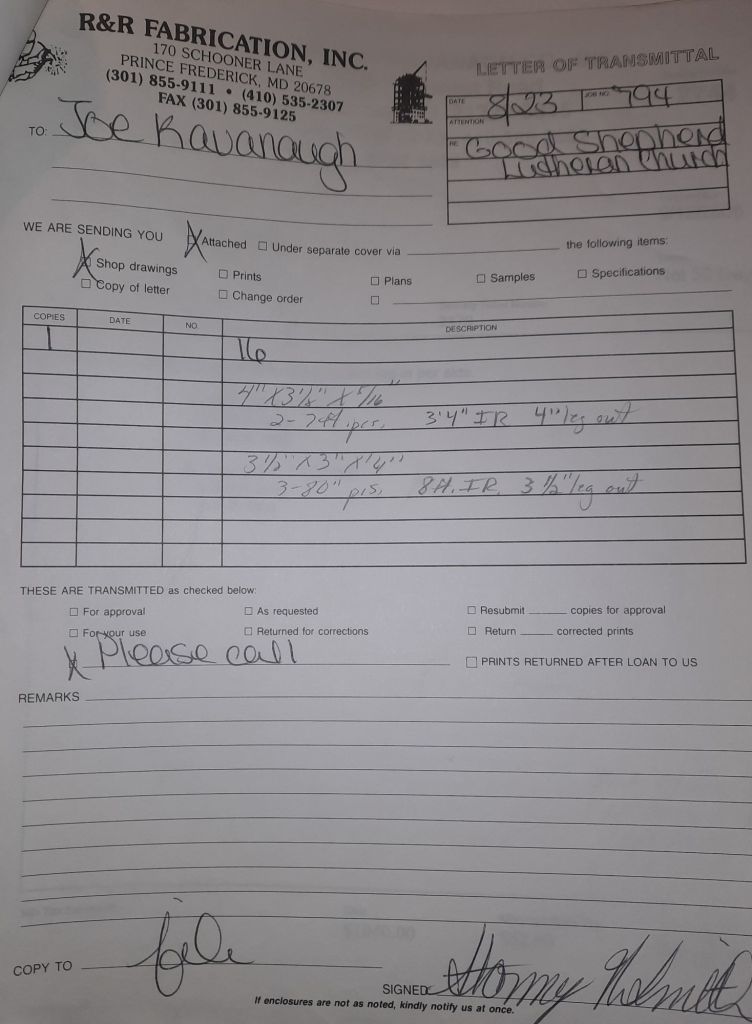 R&R FABRICATION, INC.
170 SCHOONER LANE
PRINCE FREDERICK, MD 20678
(301) 855-9111 • (410) 535-2307
FAX (301) 855-9125
LETTER OF TRANSMITTAL
DATE 8/23 JOB NO. 794
ATTENTION
RE: Good Shepherd
Lutheran Church
TO: Joe Kavanaugh
WE ARE SENDING YOU X Attached ☐ Under separate cover via the following items:
X Shop drawings ☐ Prints ☐ Plans ☐ Samples ☐ Specifications
☐ Copy of letter ☐ Change order ☐
COPIES DATE NO. DESCRIPTION
1 16
4" X 3 1/2" X 5/16"
2- pcs. 3'4" IR 4" leg out
3 1/2" X 3" X 1/4"
3-80" pcs. 8ft. IR. 3 1/2" leg out
THESE ARE TRANSMITTED as checked below:
☐ For approval ☐ As requested ☐ Resubmit copies for approval
☐ For your use ☐ Returned for corrections ☐ Return corrected prints
X Please call ☐ PRINTS RETURNED AFTER LOAN TO US
REMARKS
COPY TO file
SIGNED:
If enclosures are not as noted, kindly notify us at once.